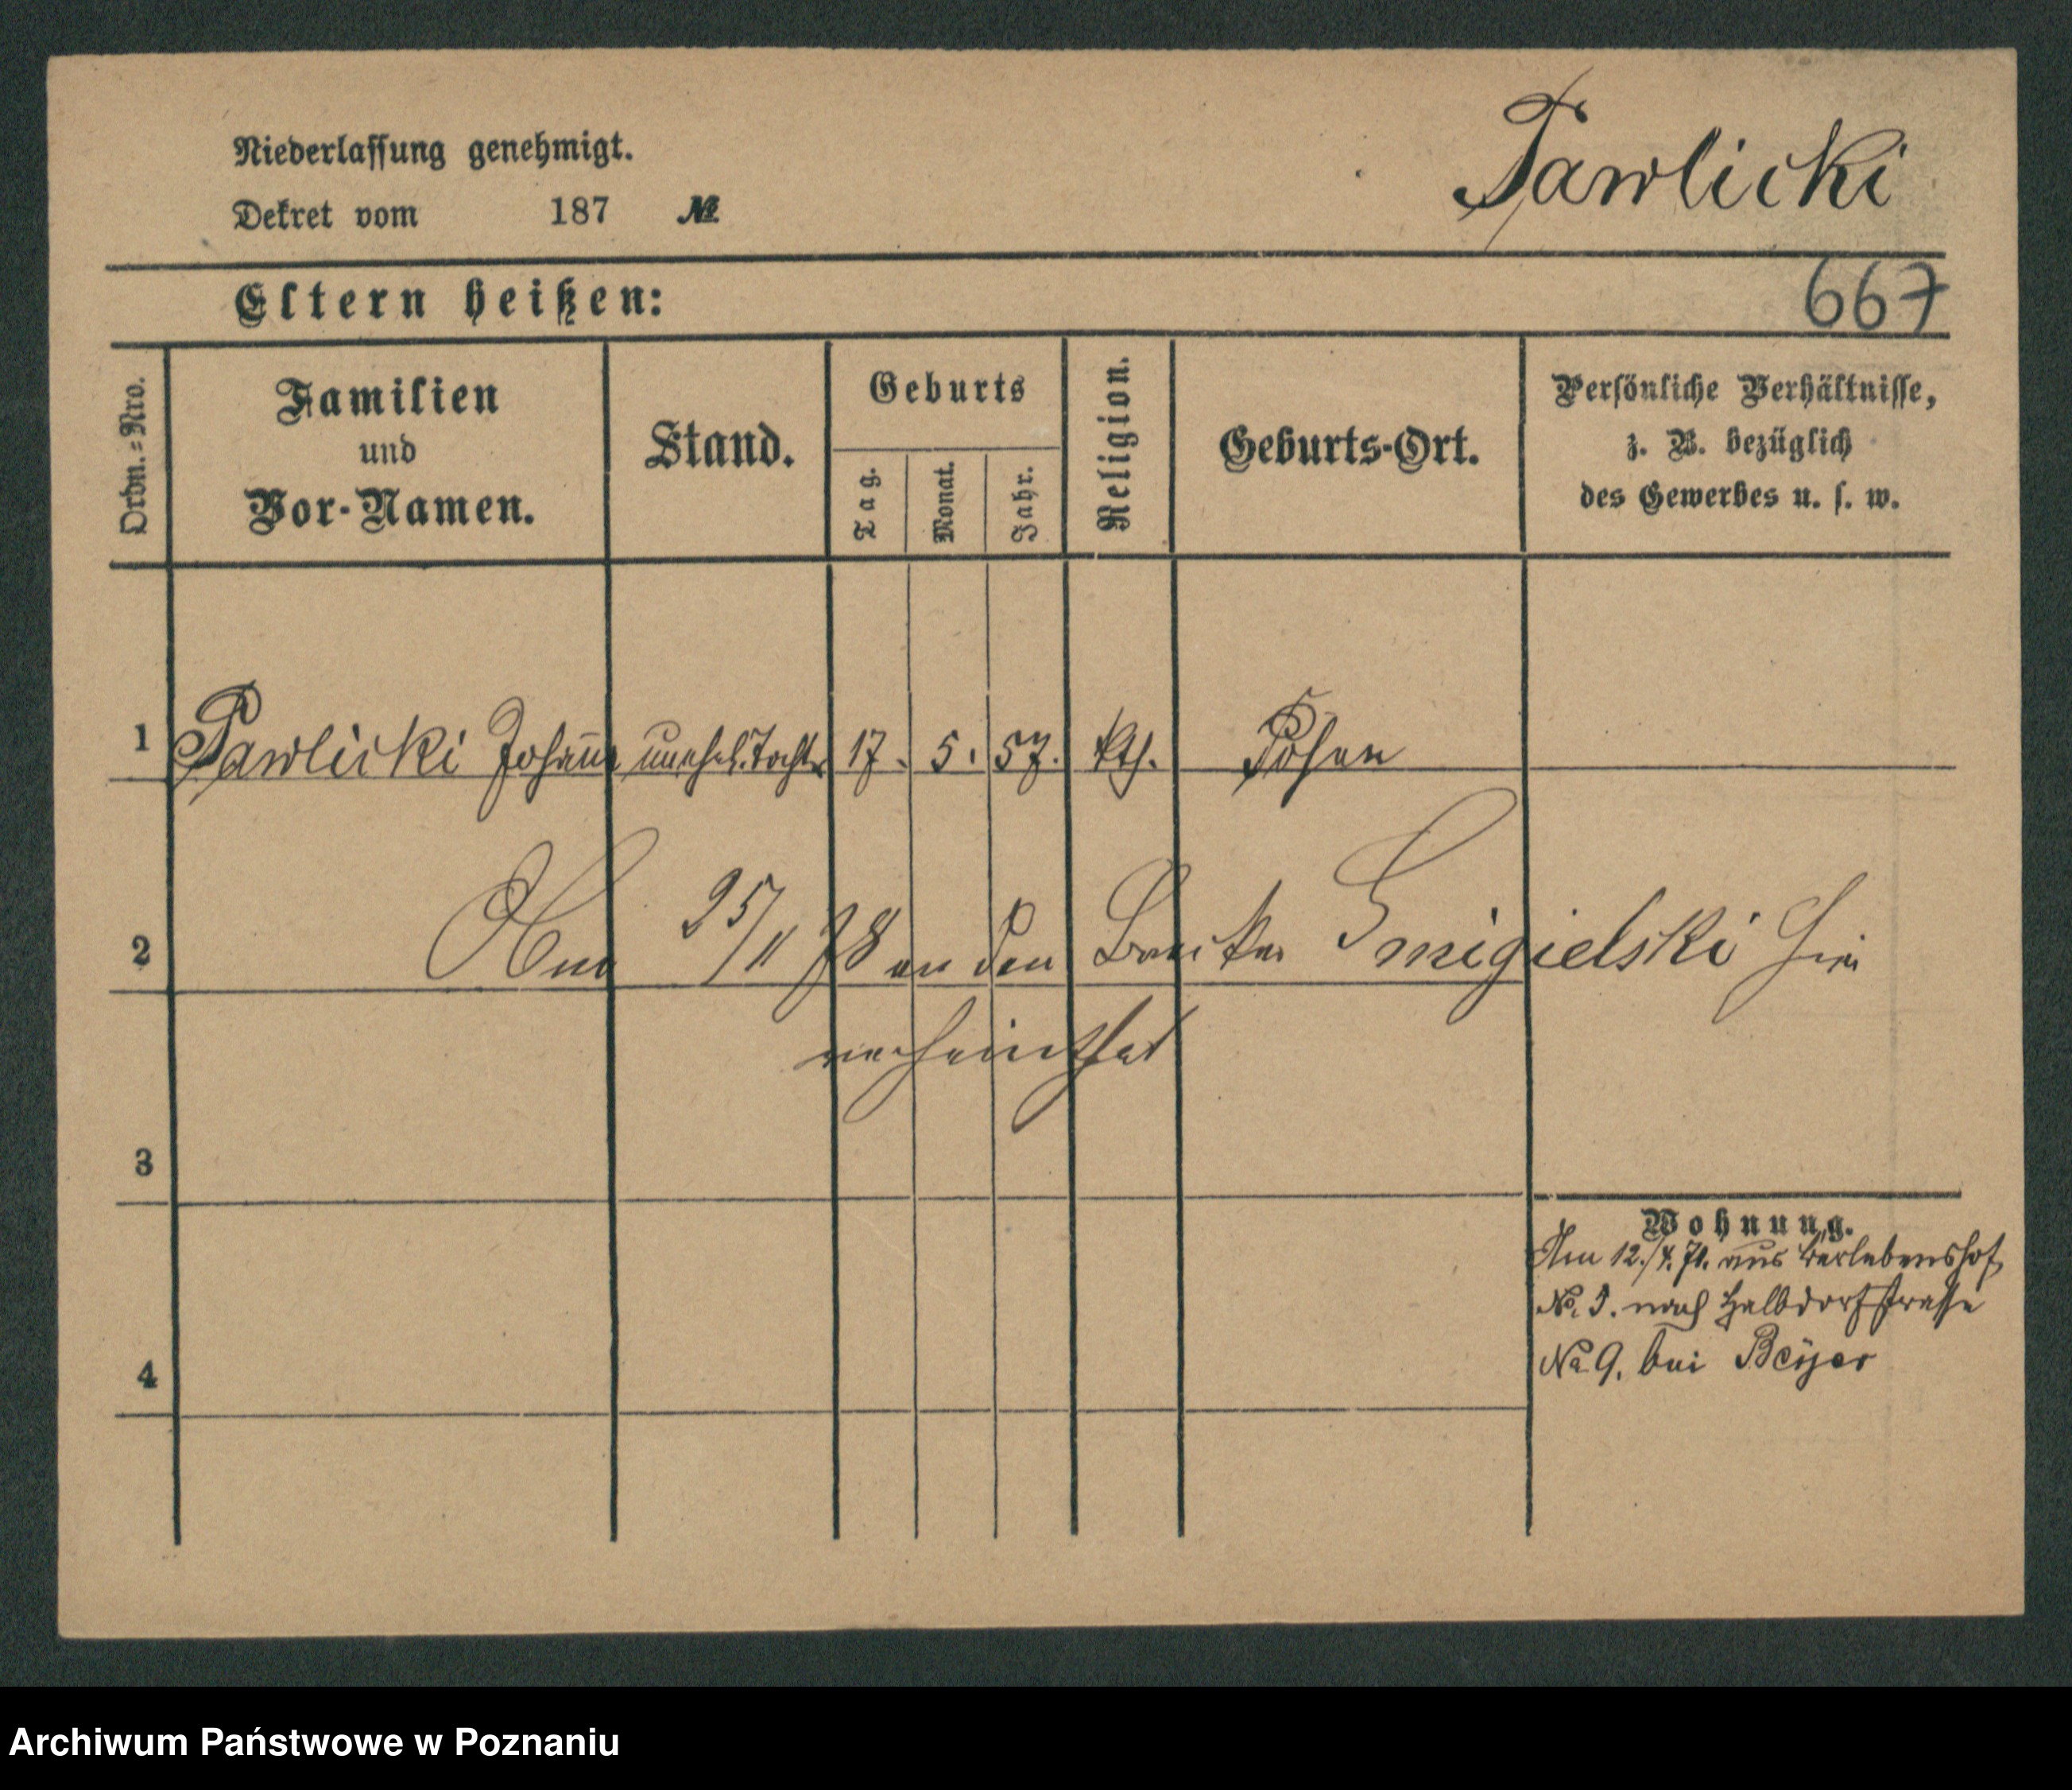 Niederlassung genehmigt.
Dekret vom 187 №
Pawlicki
Eltern heißen:
667
Ordn.=Nro.
Familien
und
Vor-Namen.
Stand.
Geburts
Tag.
Monat.
Jahr.
Religion.
Geburts-Ort.
Persönliche Verhältnisse,
z. B. bezüglich
des Gewerbes u. s. w.
1 Pawlicki Johanna unehel. Tocht. 17. 5. 57. kth. Posen
2 25/11 78 an den Smigielski hier
verheirathet
3
Wohnung.
Am 12./4. 71. aus Berlebenshof
No. 5. nach Halbdorfstrasse
No 9. bei Beyer
4
Archiwum Państwowe w Poznaniu